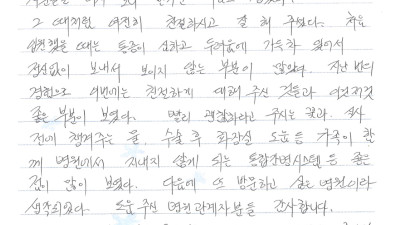 그 때처럼 여전히 친절하시고 잘 해 주셨다. 처음
입원했을 때는 통증이 심하고 두려움에 가득차 있어서
정신없이 보내서 보이지 않는 부분이 많았다. 지난 번의
경험으로 이번에는 친절하게 대해 주신 것들과 여러가지
좋은 부분이 보였다. 빨리 괜찮하라고 주시는 결과. 식사
전에 챙겨주는 물 수술 후 화장실 도움 등 가족이 함
께 병원에서 지내지 않게 되는 통합간병시스템 등 좋은
점이 많이 보였다. 다음에 또 방문하고 싶은 병원이라
생각되었다. 도움 주신 병원관계자분들 감사합니다.